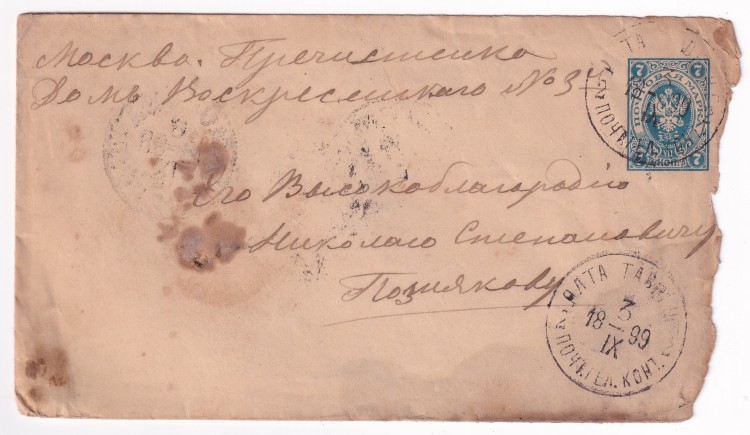 Москва. Пречистенка
Домъ Воскресенскаго № 34
Его Высокоблагородію
Николаю Степановичу
Познякову
7 7
ПОЧТОВАЯ МАРКА
7 7
ЯЛТА ТАВР.
3
18 — 99
IX
ПОЧТ. ТЕЛ. КОНТ.